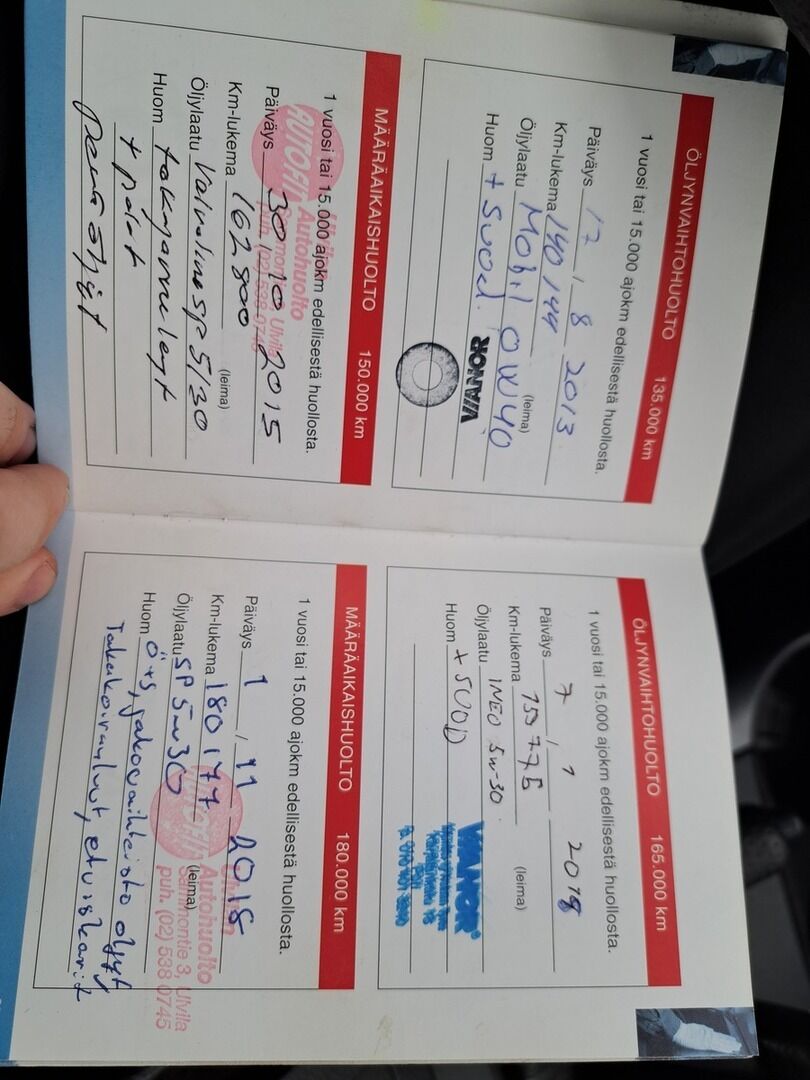 ÖLJYNVAIHTOHUOLTO 135.000 km
1 vuosi tai 15.000 ajokm edellisestä huollosta.
Päiväys 17 / 8 2013
Km-lukema 140 144
Öljylaatu Mobil 0W40
(leima)
Huom + suod.
VIANOR
MÄÄRÄAIKAISHUOLTO 150.000 km
1 vuosi tai 15.000 ajokm edellisestä huollosta.
Päiväys 30 10 2015
Km-lukema 162 800
(leima)
Öljylaatu Valvoline SP 5/30
Huom
+ palat
Autohuolto
Ulvila
puh. (02) 538 0745
ÖLJYNVAIHTOHUOLTO 165.000 km
1 vuosi tai 15.000 ajokm edellisestä huollosta.
Päiväys 7 / 1
Km-lukema
(leima)
Öljylaatu INEO 5W-30
Huom + SUOD
VIANOR
MÄÄRÄAIKAISHUOLTO 180.000 km
1 vuosi tai 15.000 ajokm edellisestä huollosta.
Päiväys 1 / 11 2018
Km-lukema 180 177
Öljylaatu SP 5w30
(leima)
Huom Ö+S, jakovaihteisto öljyt,
etuiskarit
Ulvilan
Autohuolto
Sammontie 3, Ulvila
puh. (02) 538 0745